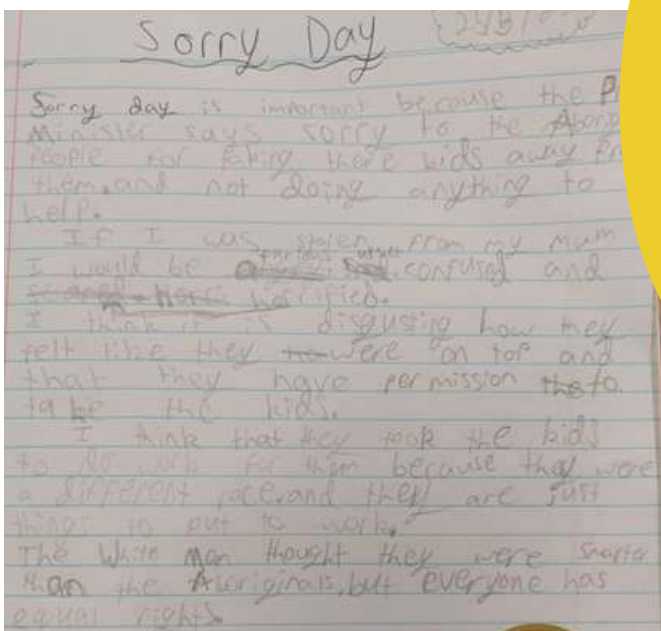 Sorry Day
Sorry day is important because the
Minister says sorry to the
People for taking there kids away
them, and not doing anything to
help.
If I was stolen from my mum
furious, upset
I would be confused and
horrified.
I think it is disgusting how they
felt like they were on top and
that they have permission to
take the kids.
I think that they took the kids
to do work for them because they were
a different race, and they are just
things to put to work.
The White Man thought they were
than the Aboriginals, but everyone has
equal rights.